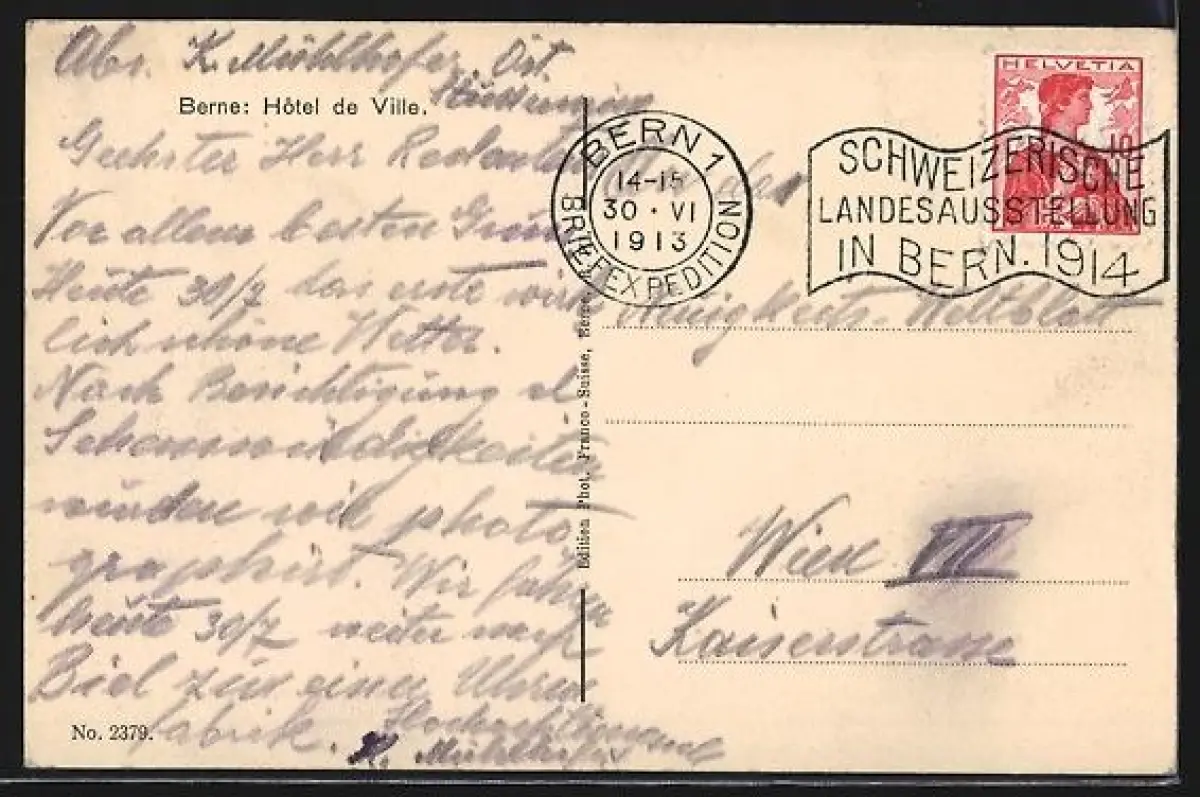 Abs. K. Mühlhofer Öst.
Berne: Hôtel de Ville.
Geehrter Herr
Vor allem besten
Heute 30/7 das erste wirk
lich schöne Wetter.
Nach Besichtigung d
Sehenswürdigkeiten
wurden wir photo
graphirt. Wir fahren
heute 30/7 weiter nach
Biel zur einer Uhren
fabrik. Hochachtungsvoll
K. Mühlhofer
No. 2379.
Edition Phot. Franco-Suisse, Berne
BERN 1
14-15
30·VI
1913
BRIEFEXPEDITION
HELVETIA
10
SCHWEIZERISCHE
LANDESAUSSTELLUNG
IN BERN. 1914
An das
Neuigkeits-Weltblatt
Wien VII
Kaiserstrasse